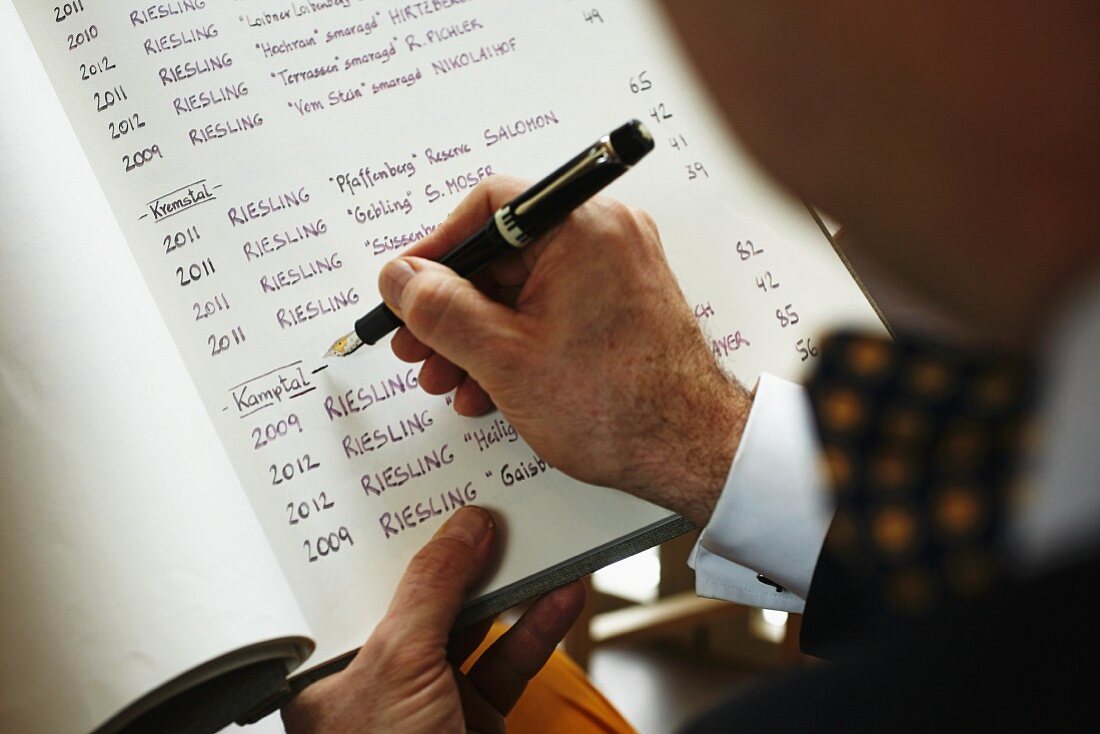 2011 RIESLING
2010 RIESLING "Loibner Loibenberg"
2012 RIESLING "Hochrain" smaragd HIRTZBERGER 49
2011 RIESLING "Terrassen" smaragd R. PICHLER
2012 RIESLING "Vom Stein" smaragd NIKOLAIHOF
2009 RIESLING
- Kremstal -
2011 RIESLING "Pfaffenberg" Reserve SALOMON 65
2011 RIESLING "Gebling" S. MOSER 42
2011 RIESLING 41
2011 RIESLING 39
- Kamptal -
2009 RIESLING " 82
2012 RIESLING "Heilig 42
2012 RIESLING "Gaisb CH 85
2009 RIESLING AYER 56